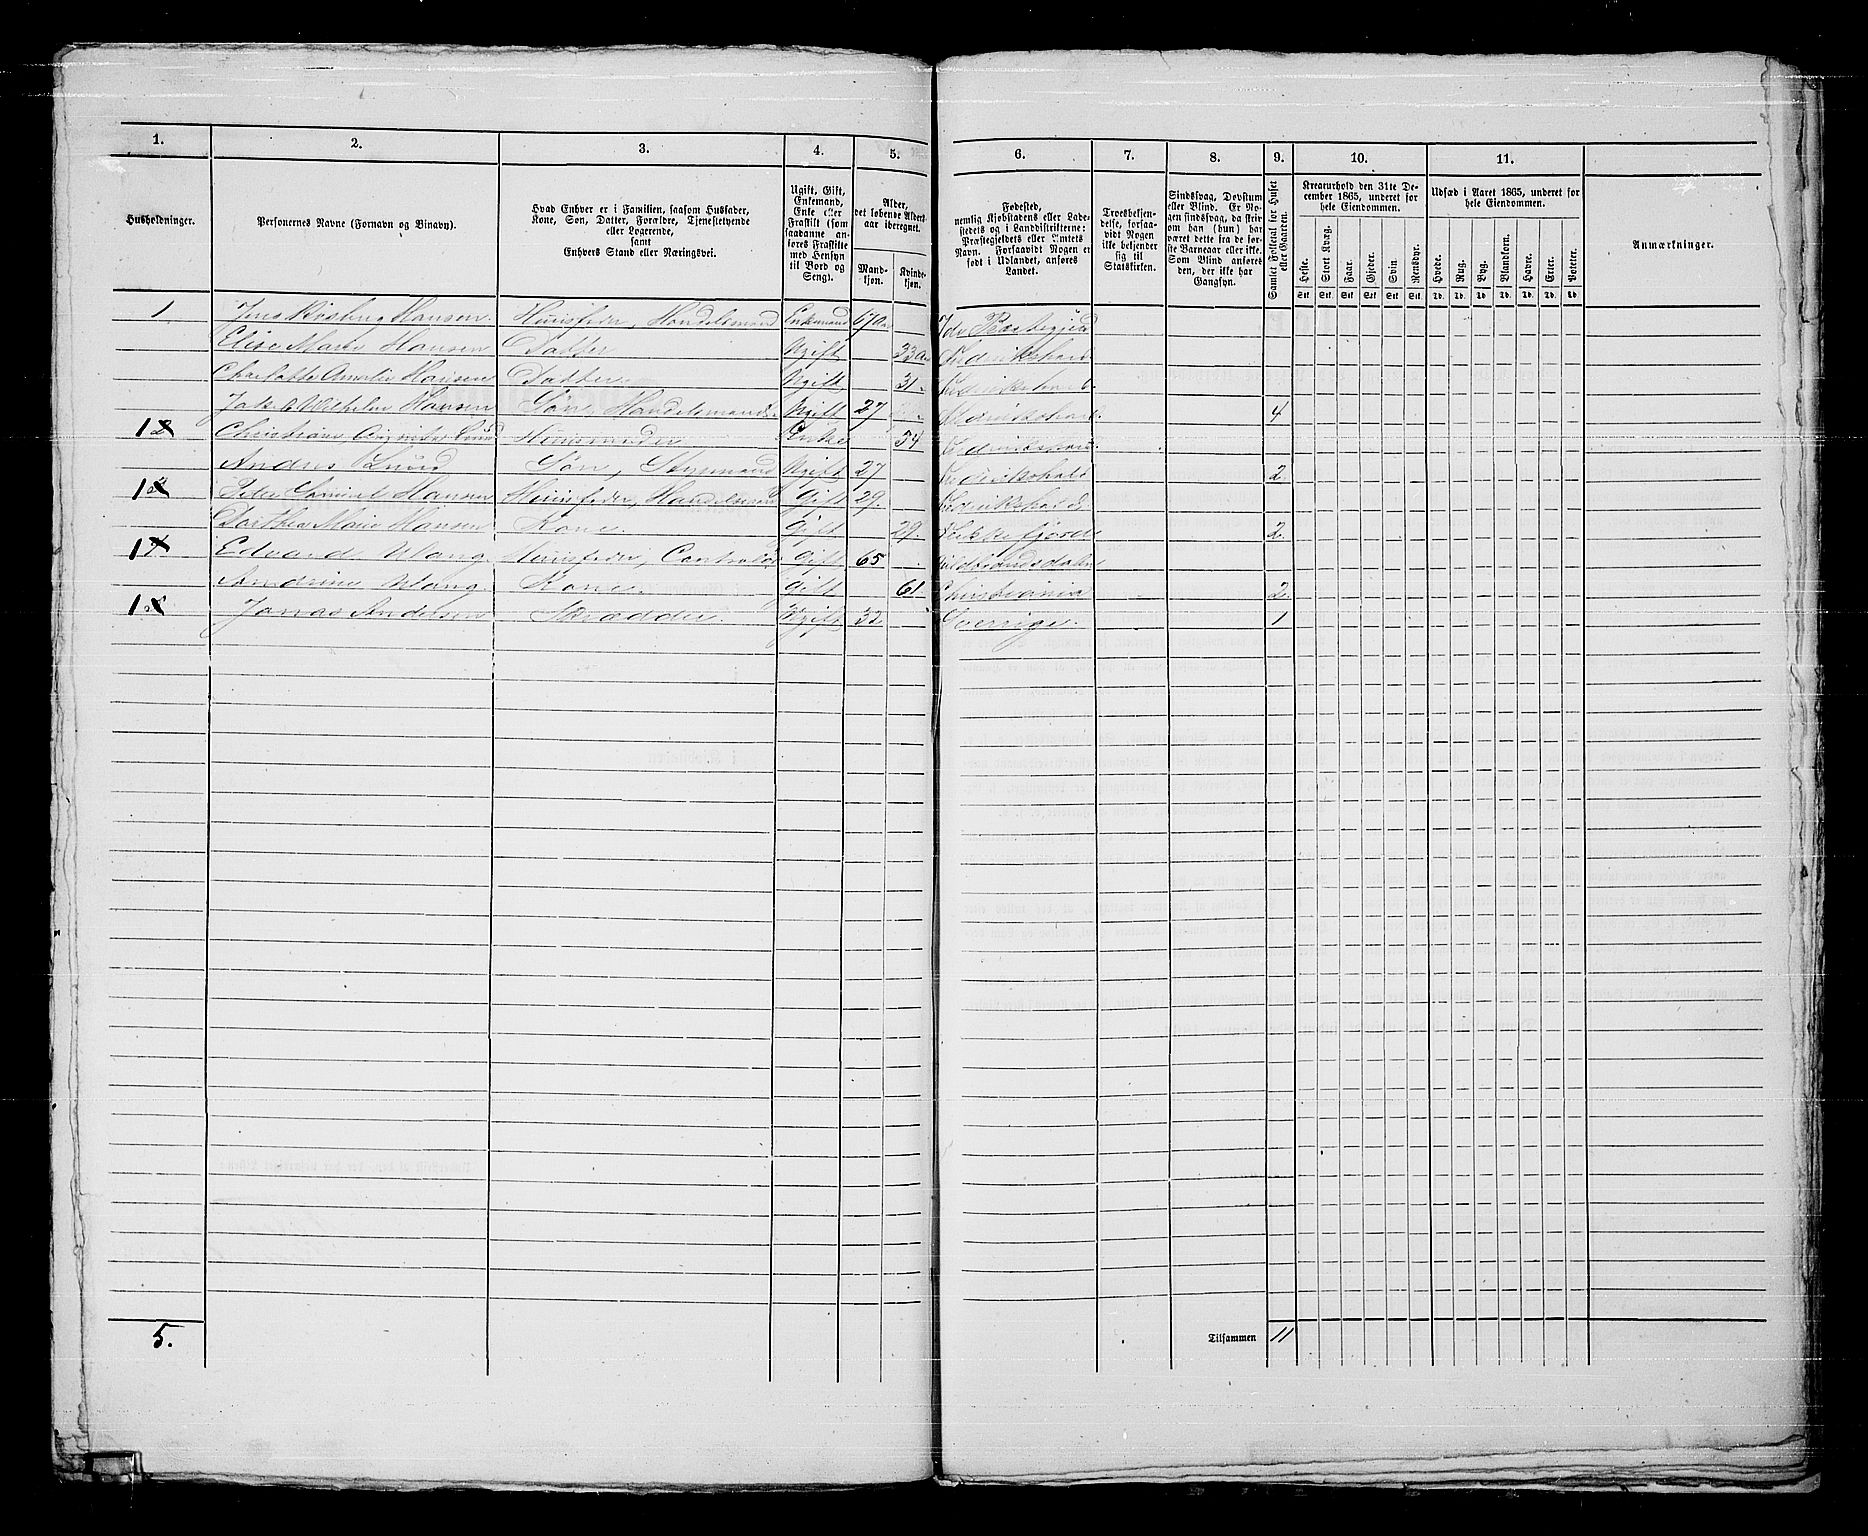 1. 2. 3. 4. 5. 6. 7. 8. 9. 10. 11.
Husholdninger.
Personernes Navne (Fornavn og Binavn).
Hvad Enhver er i Familien, saasom Husfader,
Kone, Søn, Datter, Forældre, Tjenestetyende
eller Logerende,
samt
Enhvers Stand eller Næringsvei.
Ugift, Gift,
Enkemand,
Enke eller
Fraskilt (som
saadanne an-
føres Fraskilte
med Hensyn
til Bord og
Seng).
Alder,
det løbende Alders-
aar iberegnet.
Mand-
kjøn.
Kvinde-
kjøn.
Fødested,
nemlig Kjøbstadens eller Lade-
stedets og i Landdistrikterne:
Præstegjeldets eller Amtets
Navn. Forsaavidt Nogen er
født i Udlandet, anføres
Landet.
Troesbekjen-
delse, forsaa-
vidt Nogen
ikke bekjender
sig til
Statskirken.
Sindssvag, Døvstum
eller Blind. Er No-
gen sindssvag, da skriv
om han (hun) har
været dette fra de før-
ste Barneaar eller ikke.
Som Blind anføres
den, der ikke har
Gangsyn.
Samlet Folketal for Huset
eller Gaarden.
Kreaturhold den 31te De-
cember 1865, underet for
hele Eiendommen.
Heste. Stort Kvæg. Faar. Gjeder. Svin. Rensdyr.
Stk. Stk. Stk. Stk. Stk. Stk.
Udsæd i Aaret 1865, underet for
hele Eiendommen.
Hvede. Rug. Byg. Blandkorn. Havre. Erter. Poteter.
Td. Td. Td. Td. Td. Td. Td.
Anmærkninger.
1 Jens Hansen Huusfader, Handelsmand Enkemand 67 Ids Præstegjeld
Elise Marie Hansen Datter Ugift 33 Fredrikshald
Charlotte Amalie Hansen Datter Ugift 31 Fredrikshald
Jakob Wilhelm Hansen Søn, Handelsmand Ugift 27 Fredrikshald 4
1 Christiane Lund Huusmoder Enke 54 Fredrikshald
Andres Lund Søn, Styrmand Ugift 27 Fredrikshald 2
1 Peter Hansen Huusfader, Handelsmand Gift 29 Fredrikshald
Dorthea Marie Hansen Kone Gift 29 2
1 Edvard Wang Huusfader, Gift 65 Guldbrandsdalen
Wang Kone Gift 61 Christiania 2
1 Jonas Andersen Skrædder Ugift 32 Sverrige 1
5. Tilsammen 11